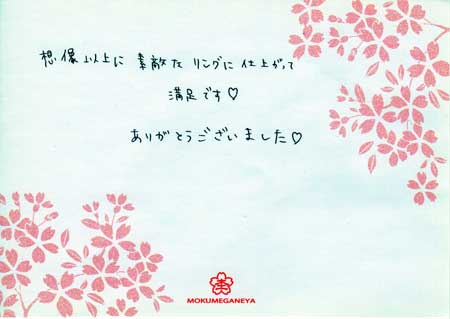 想像以上に 素敵な リングに 仕上がって
満足です♡
ありがとうございました♡
MOKUMEGANEYA